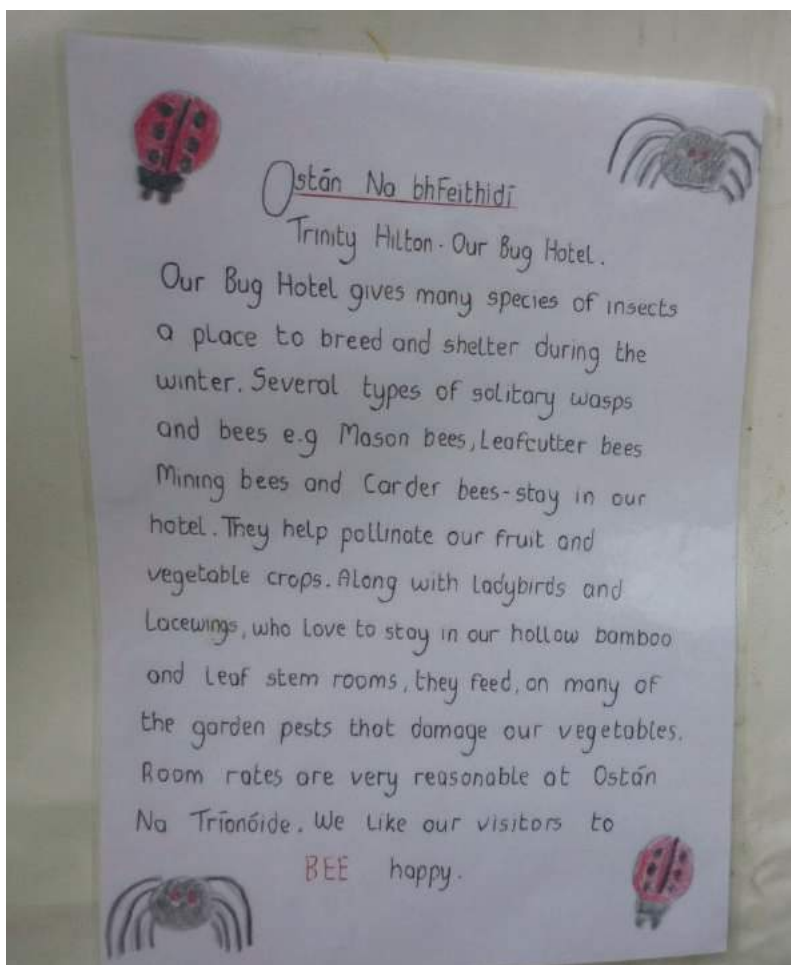 Ostán Na bhFeithidí
Trinity Hilton. Our Bug Hotel.
Our Bug Hotel gives many species of insects
a place to breed and shelter during the
winter. Several types of solitary wasps
and bees e.g Mason bees, Leafcutter bees
Mining bees and Carder bees-stay in our
hotel. They help pollinate our fruit and
vegetable crops. Along with ladybirds and
Lacewings, who love to stay in our hollow bamboo
and leaf stem rooms, they feed, on many of
the garden pests that damage our vegetables.
Room rates are very reasonable at Ostán
Na Tríonóide. We like our visitors to
BEE happy.